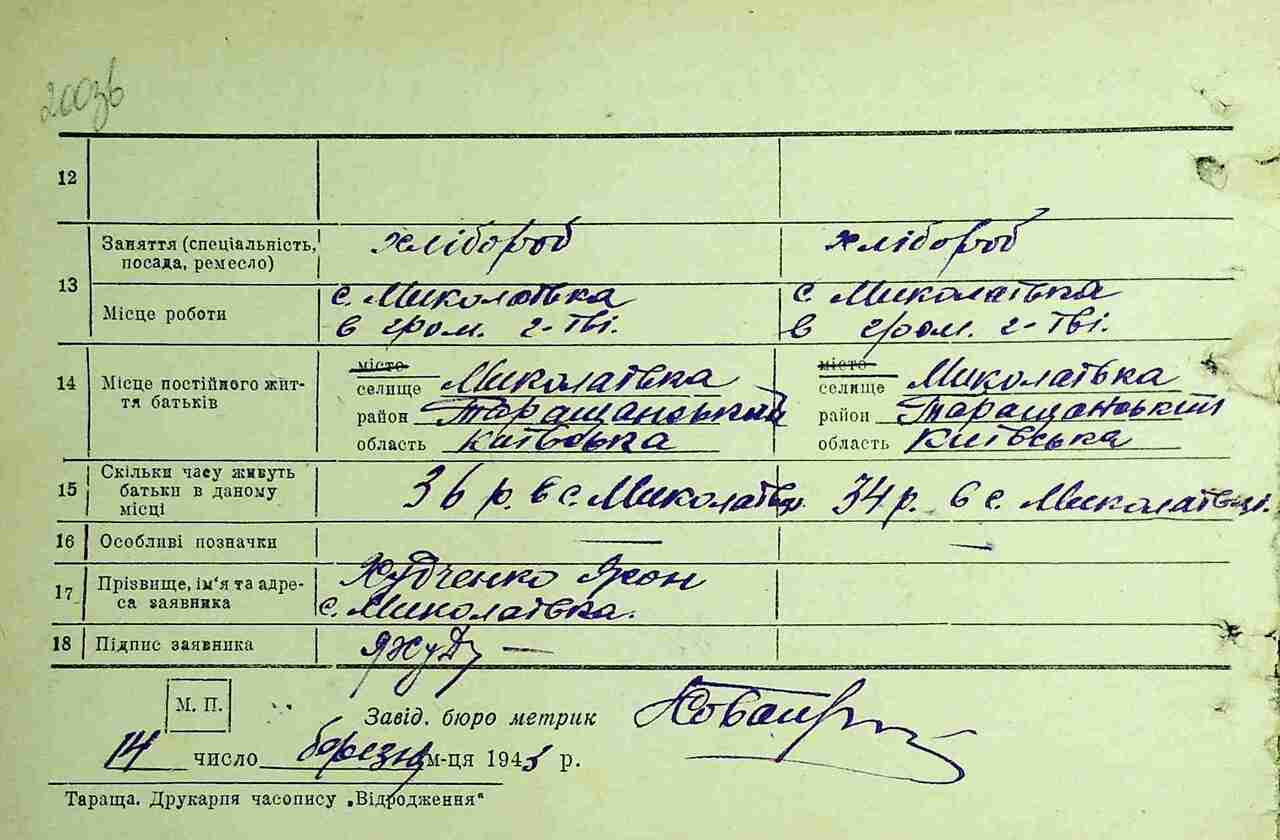 2003б
12
13 Заняття (спеціальність, посада, ремесло) хлібороб хлібороб
Місце роботи с. Миколаївка с. Миколаївка
в гром. г-тві. в гром. г-тві.
14 Місце постійного життя батьків
місто місто
селище Миколаївка селище Миколаївка
район Таращанський район Таращанський
область Київська область Київська
15 Скільки часу живуть батьки в даному місці 36 р. в с. Миколаївці 34 р. в с. Миколаївці.
16 Особливі позначки — —
17 Прізвище, ім'я та адреса заявника Худченко Якон
с. Миколаївка.
18 Підпис заявника ЯХуд —
М. П.
Завід. бюро метрик
14 число березня м-ця 1943 р.
Тараща. Друкарня часопису „Відродження"